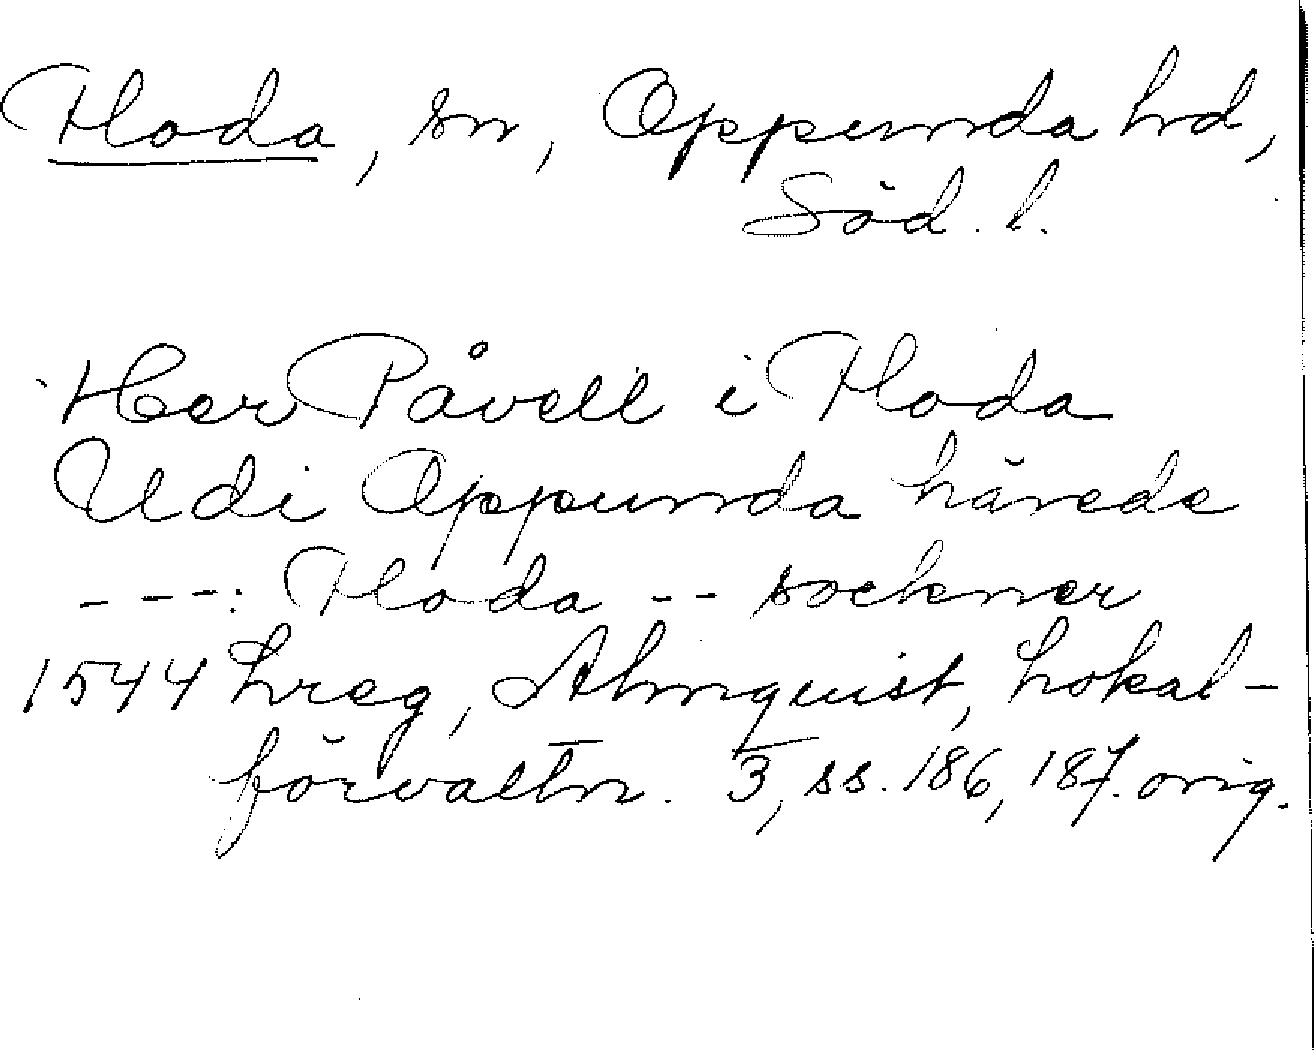 Floda, sn, Oppunda hd,
Söd. l.
Her Påvell i Floda
Udi Oppunda härede
---: Floda -- sockner
1544 Lreg, Almquist, Lokal-
förvaltn. 3, ss. 186, 187. orig.